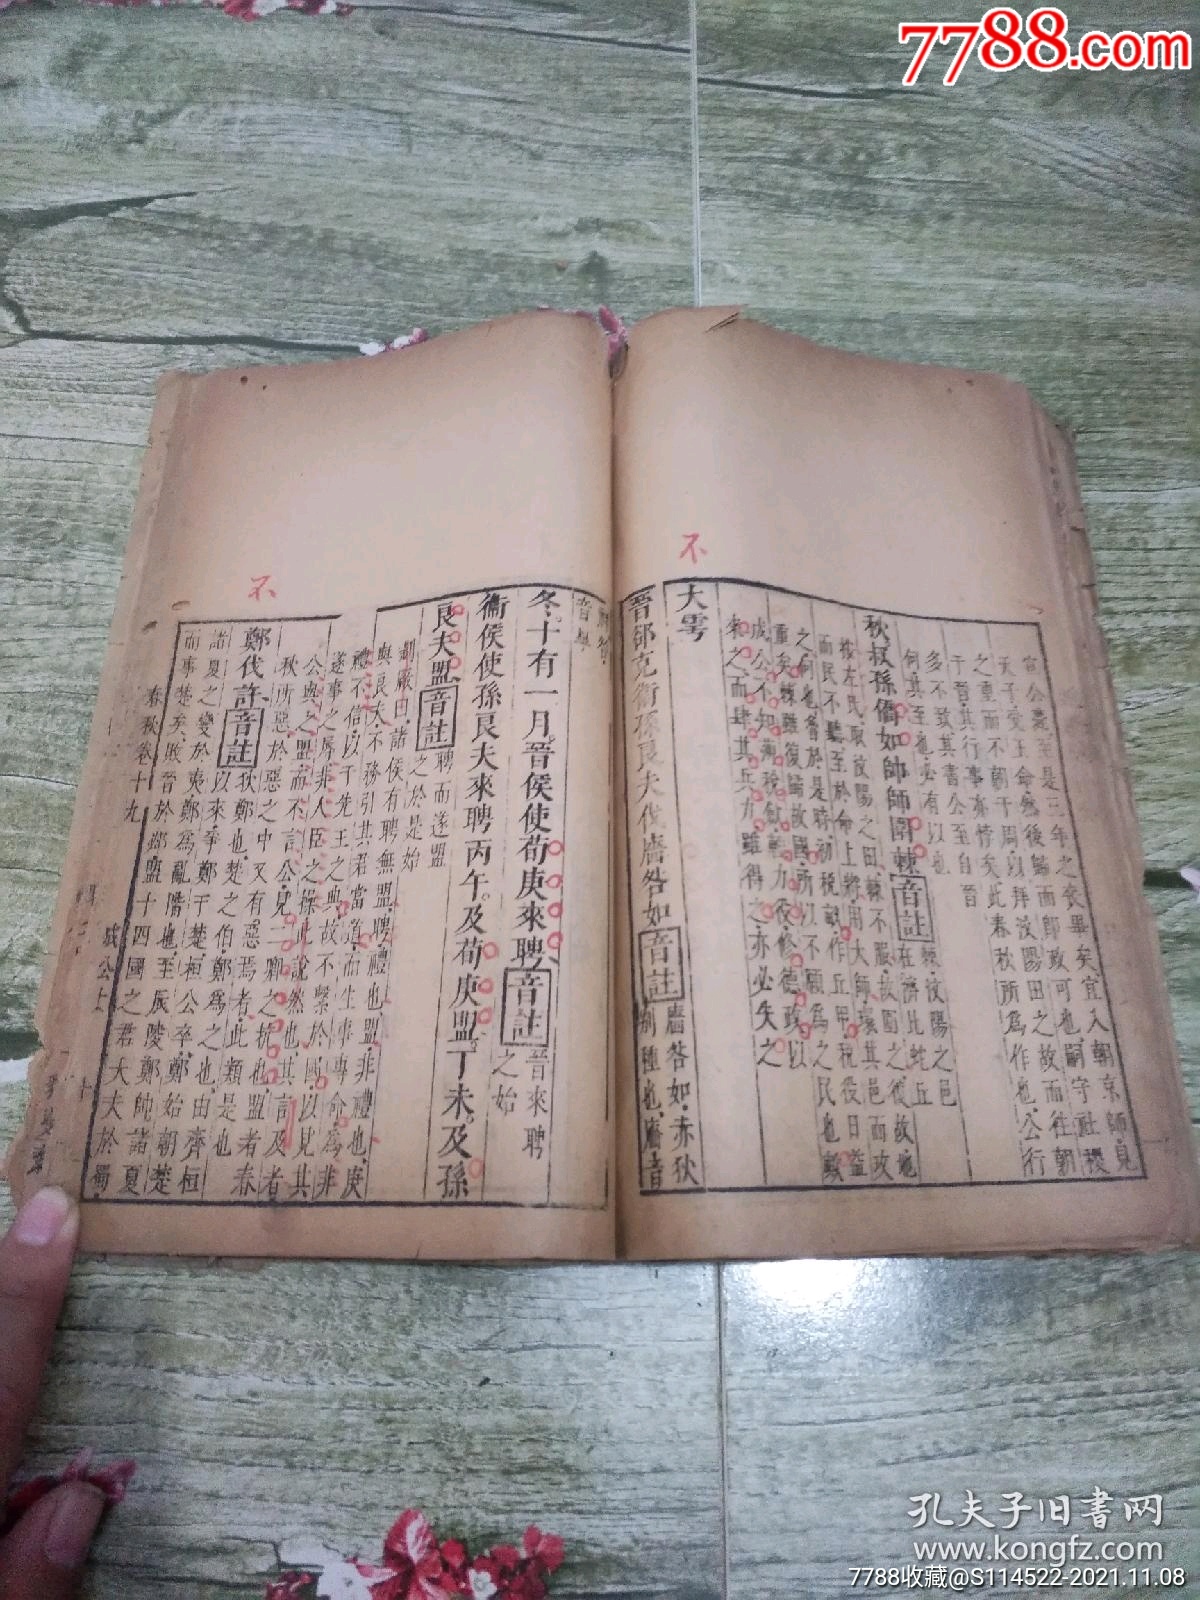 7788.com
不
不
宣公薨至是三年之喪畢矣宜入朝京師見
天子受王命然後歸而即政可也嗣守社稷
之重而不朝于周以拜汶陽田之故而往朝
于晉其行事亦悖矣此春秋所爲作也公行
多不致其書公至自晉
何其至也必有以也
秋叔孫僑如帥師圍棘音註棘汶陽之邑
在濟北蛇丘
按左氏取汶陽之田棘不服故圍之復故地
而民不聽至於命上將用大師環其邑而攻
之何也魯於是時初稅畝作丘甲稅役日益
重矣棘雖復歸故國所以不願爲之民也歟
成公不知薄稅斂輕力役修德政以
來之而肆其兵力雖得之亦必失之
大雩
晉郤克衛孫良夫伐廧咎如音註廧咎如赤狄
別種也廧音
冬十有一月晉侯使荀庚來聘音註晉來聘
之始
衛侯使孫良夫來聘丙午及荀庚盟丁未及孫
良夫盟音註聘而遂盟
之於是始
劉敞曰諸侯有聘無盟聘禮也盟非禮也庚
與良夫不務引其君當道而生事專命爲非
禮不信以干先王之典故不繫於國以見其
遂事之辱非人臣之操此說然也其言及者
公與之盟而不言公見二卿之抗也盟者春
秋所惡於惡之中又有惡焉者此類是也
鄭伐許音註狄鄭也楚之伯鄭爲之也由齊桓
以來爭鄭于楚桓公卒鄭始朝楚
諸夏之變於夷鄭爲亂階也至辰陵鄭帥諸夏
而事楚矣敗晉於邲盟十四國之君大夫於蜀
春秋卷十九
成公上
十
孔夫子旧书网
www.kongfz.com
7788收藏@S114522-2021.11.08